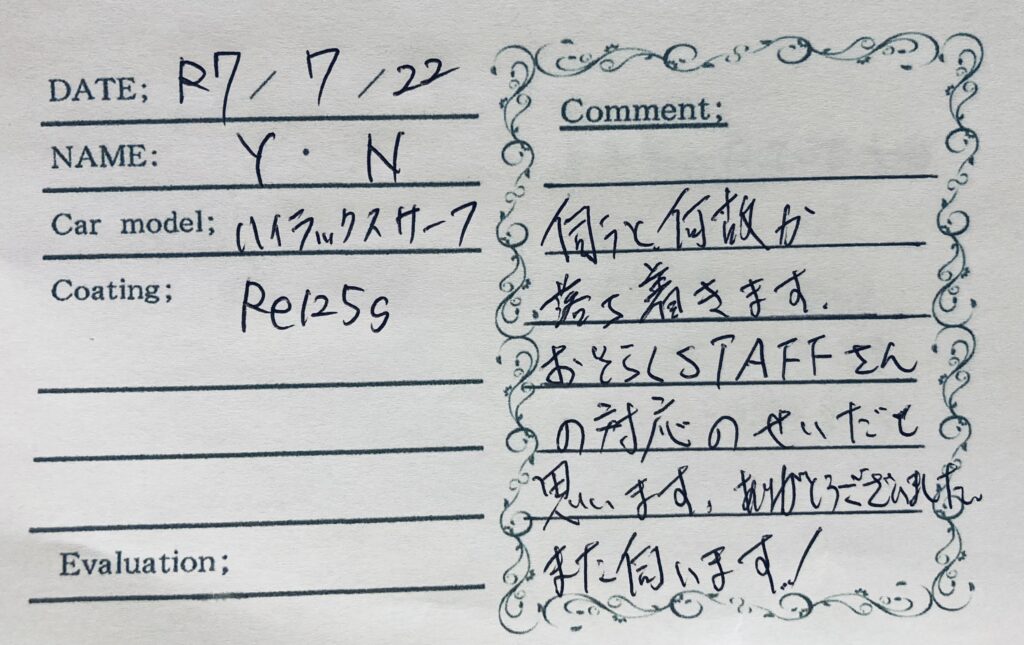 DATE; R7/7/22
NAME: Y・N
Car model; ハイラックスサーフ
Coating; Re125g
Evaluation;
Comment;
伺うと何故か
落ち着きます.
おそらくSTAFFさん
の対応のせいだと
思います, ありがとうございました
また伺います!